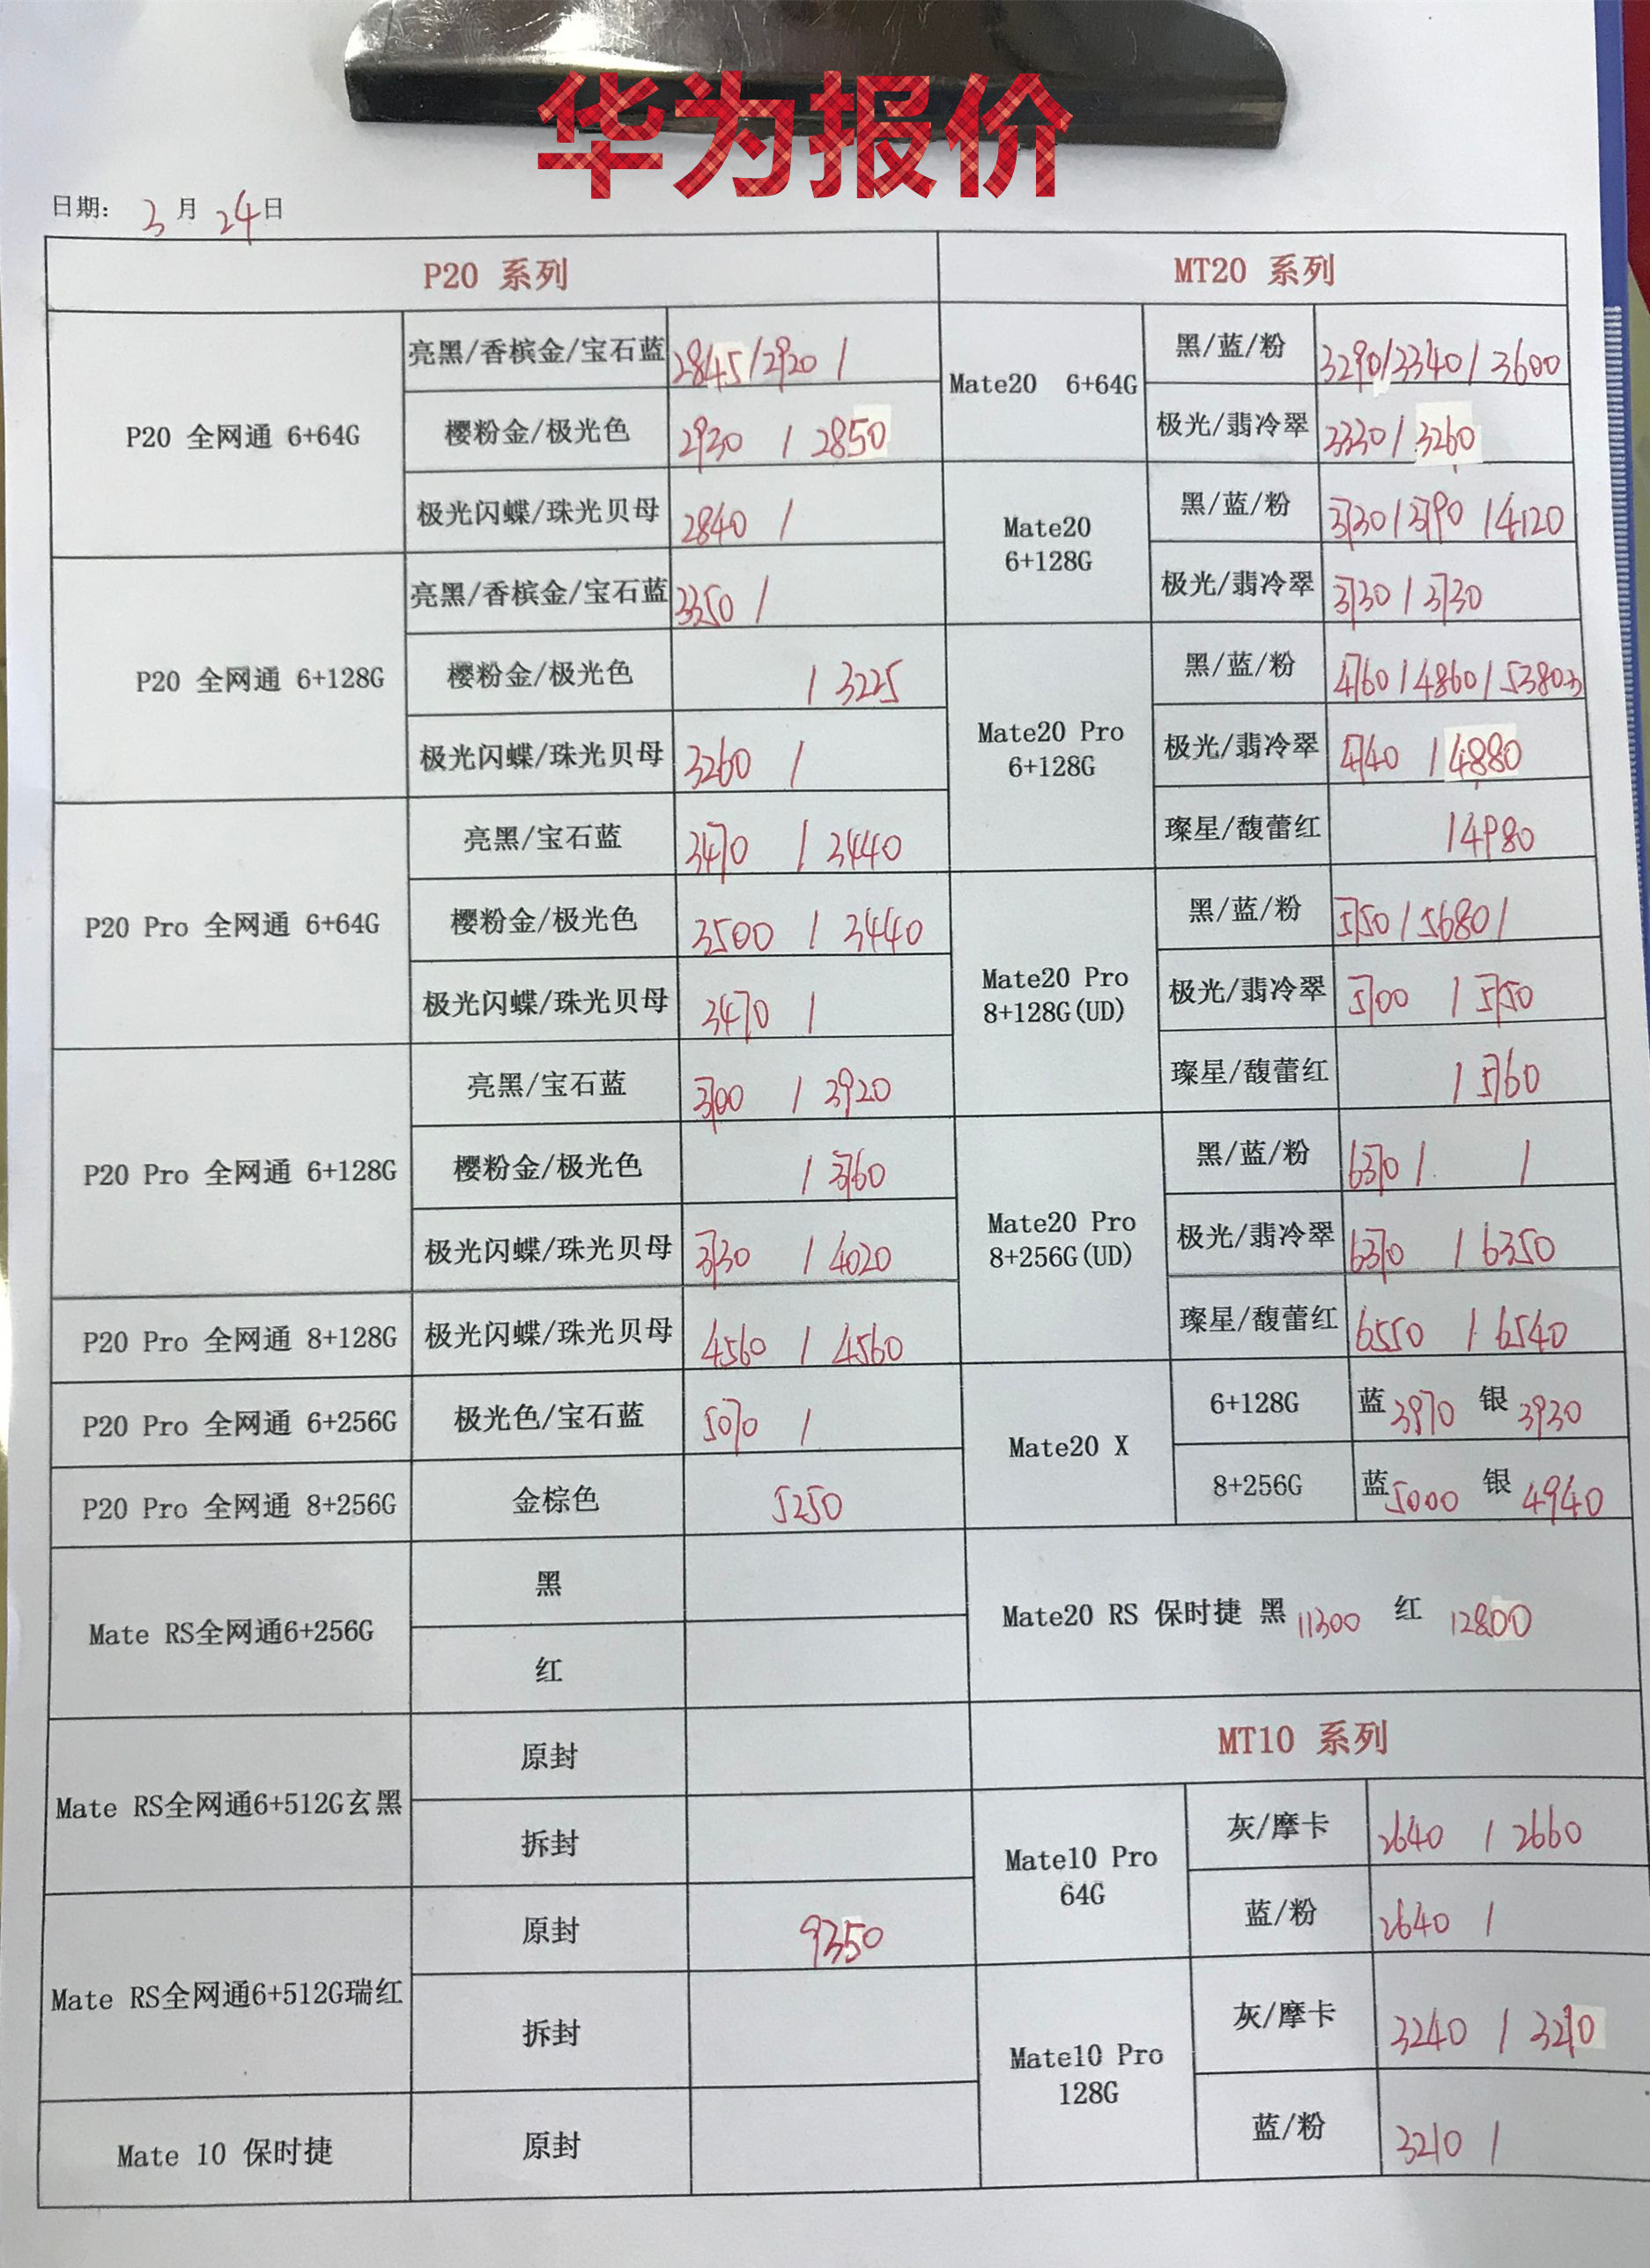 华为报价
日期： 3 月 24 日
P20 系列
P20 全网通 6+64G
亮黑/香槟金/宝石蓝 2845/2920 /
樱粉金/极光色 2930 / 2850
极光闪蝶/珠光贝母 2840 /
P20 全网通 6+128G
亮黑/香槟金/宝石蓝 3350 /
樱粉金/极光色 / 3225
极光闪蝶/珠光贝母 3260 /
P20 Pro 全网通 6+64G
亮黑/宝石蓝 3470 / 3440
樱粉金/极光色 3500 / 3440
极光闪蝶/珠光贝母 3470 /
P20 Pro 全网通 6+128G
亮黑/宝石蓝 3700 / 3920
樱粉金/极光色 / 3760
极光闪蝶/珠光贝母 3730 / 4020
P20 Pro 全网通 8+128G 极光闪蝶/珠光贝母 4560 / 4560
P20 Pro 全网通 6+256G 极光色/宝石蓝 5070 /
P20 Pro 全网通 8+256G 金棕色 5250
Mate RS全网通6+256G
黑
红
Mate RS全网通6+512G玄黑
原封
拆封
Mate RS全网通6+512G瑞红
原封 9350
拆封
Mate 10 保时捷 原封
MT20 系列
Mate20 6+64G
黑/蓝/粉 3290/3340/3600
极光/翡冷翠 3330/3260
Mate20
6+128G
黑/蓝/粉 3730/3790/4120
极光/翡冷翠 3730/3730
Mate20 Pro
6+128G
黑/蓝/粉 4760/4860/5380
极光/翡冷翠 4740 /4880
璨星/馥蕾红 /4980
Mate20 Pro
8+128G(UD)
黑/蓝/粉 5750/5680/
极光/翡冷翠 5700 / 5750
璨星/馥蕾红 / 5760
Mate20 Pro
8+256G(UD)
黑/蓝/粉 6370 / /
极光/翡冷翠 6370 / 6350
璨星/馥蕾红 6550 / 6540
Mate20 X
6+128G 蓝 3970 银 3930
8+256G 蓝 5000 银 4940
Mate20 RS 保时捷 黑 11300 红 12800
MT10 系列
Mate10 Pro
64G
灰/摩卡 2640 / 2660
蓝/粉 2640 /
Mate10 Pro
128G
灰/摩卡 3240 / 3210
蓝/粉 3210 /